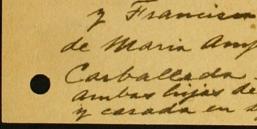 y Francisca
de Maria Amp
Carballada
ambas hijas de
y casada en s